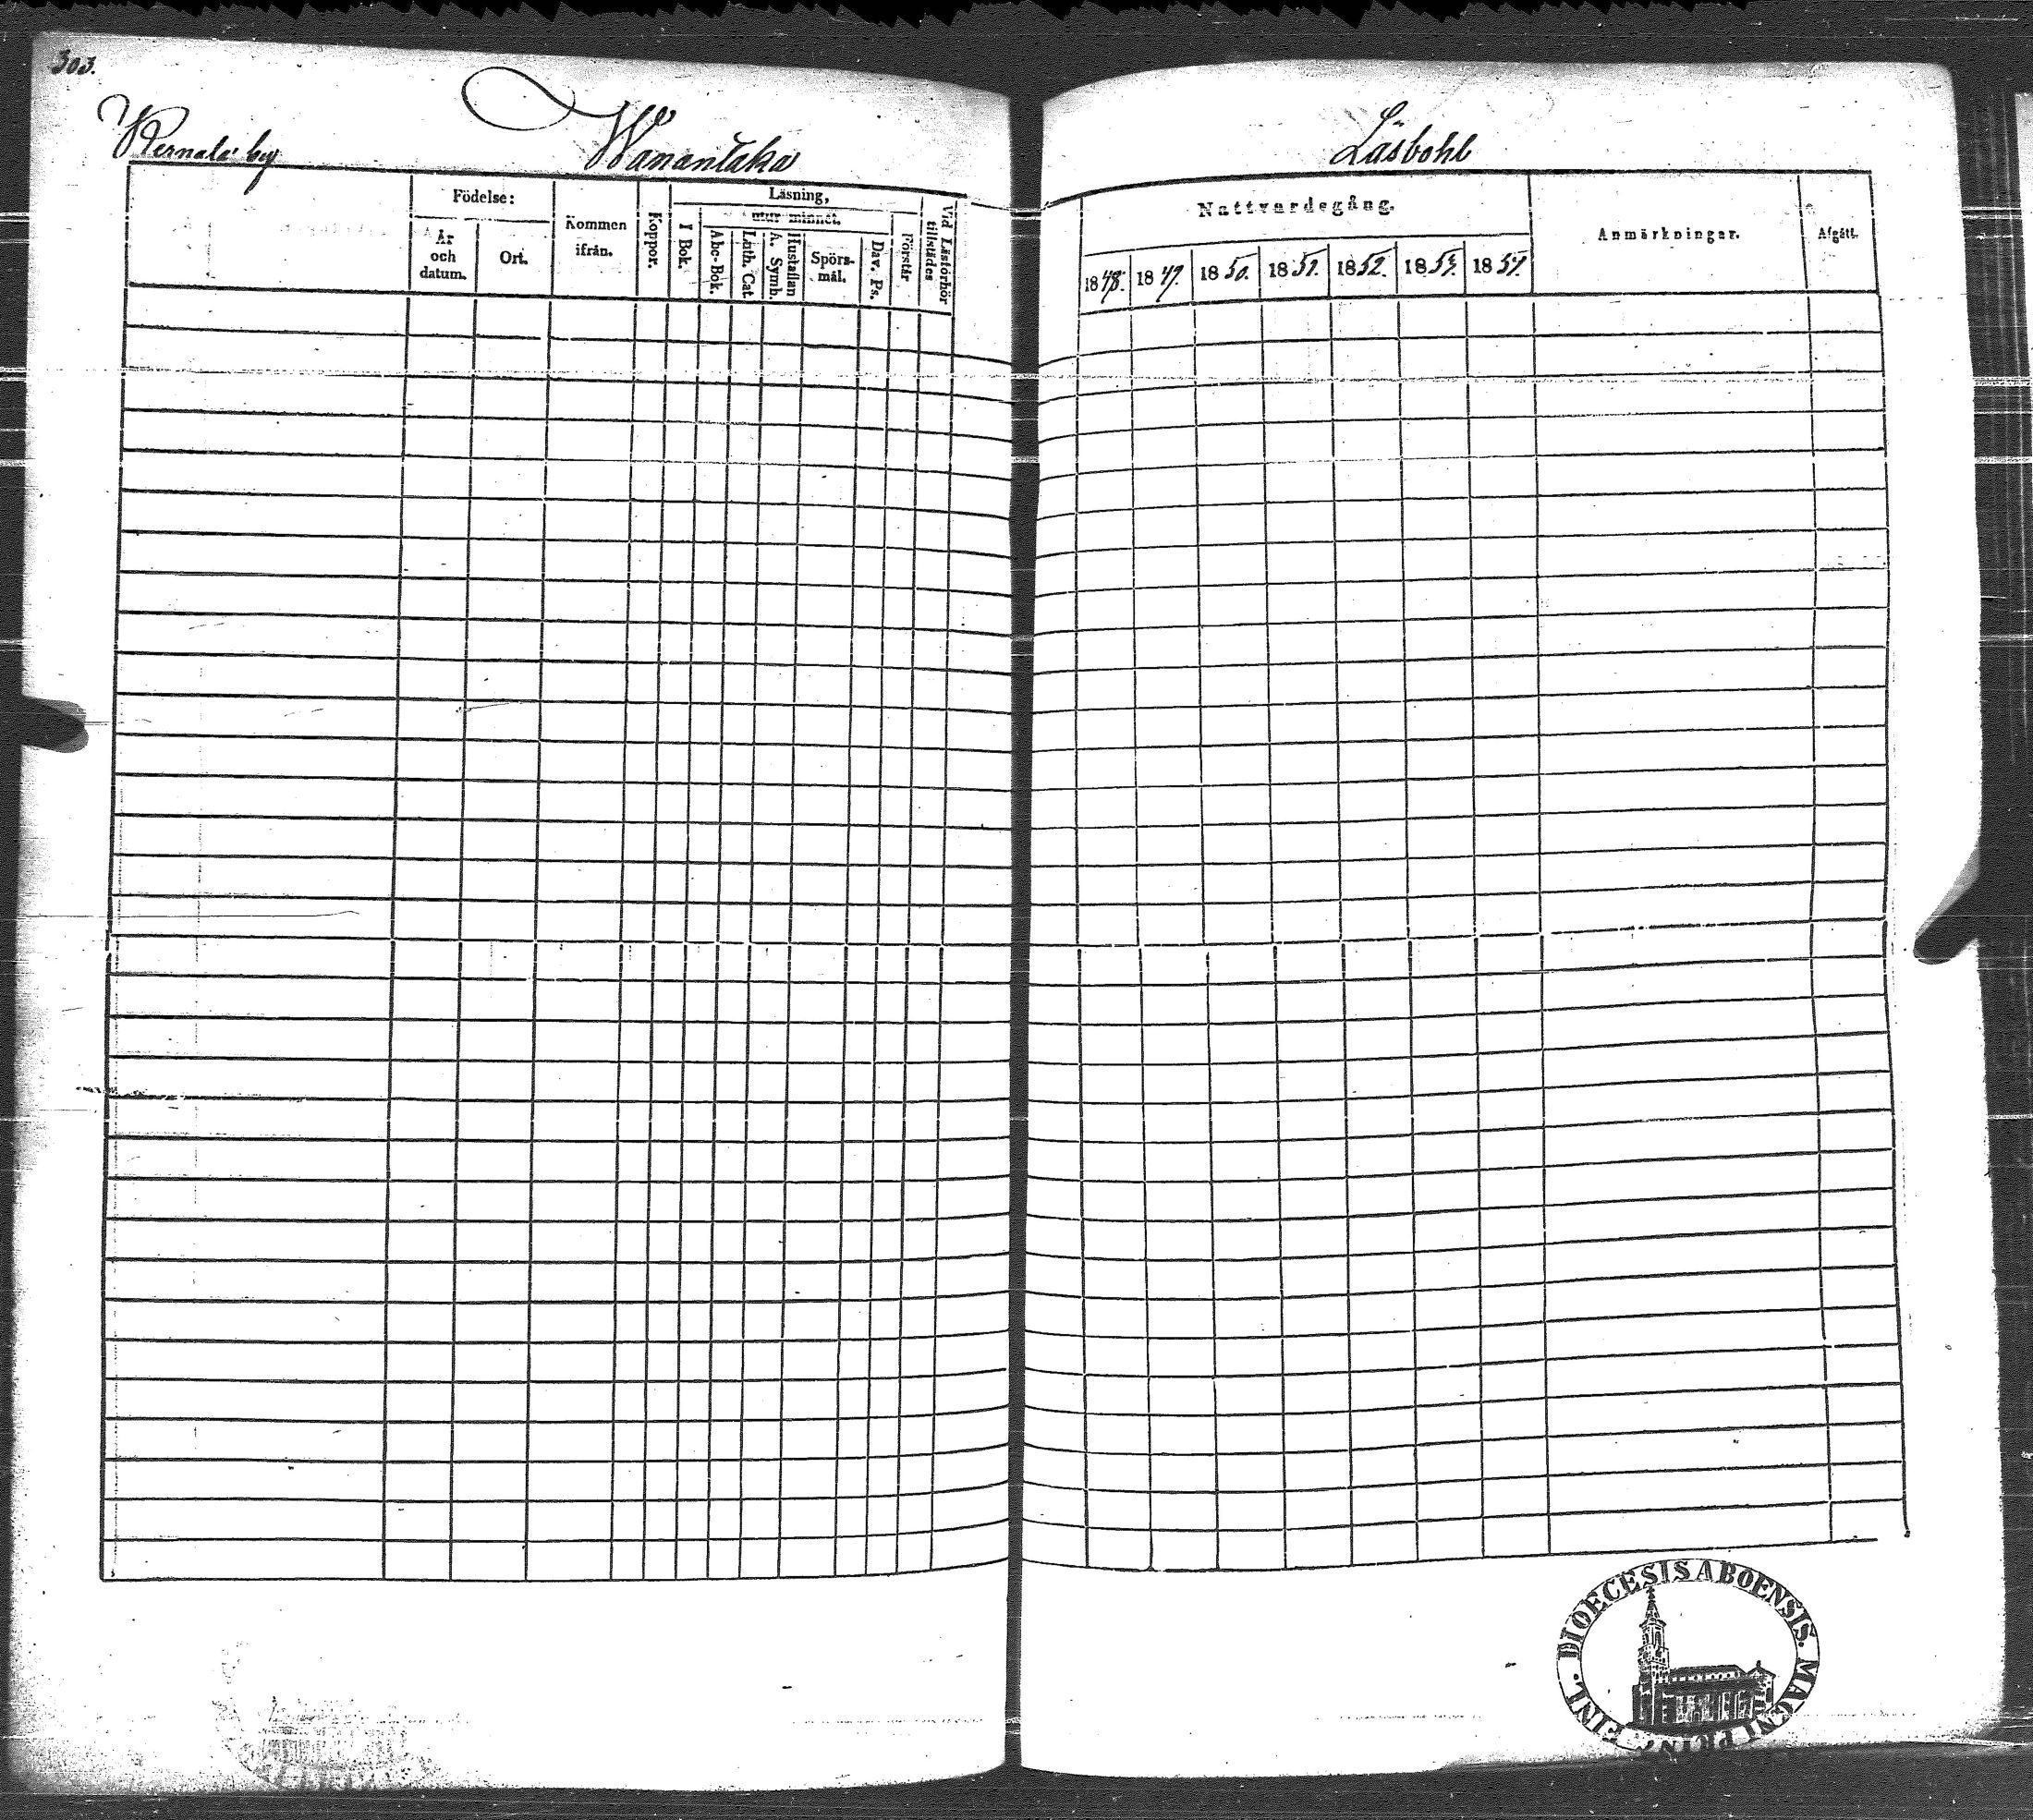 303.
Wernala by Wanantaka Läsbohl
Födelse:
År och datum.
Ort.
Kommen ifrån.
Koppor.
Läsning,
I Bok.
utur minnet.
Abc-Bok.
Luth. Cat.
Hustaflan A. Symb.
Spörs-mål.
Dav. Ps.
Förstår
Vid Läsförhör tillstädes
Nattvardsgång.
1848. 1849. 1850. 1851. 1852. 1853. 1854.
Anmärkningar.
Afgått.
DIOECESIS ABOENSIS. MAGNI PRINC. FINL.